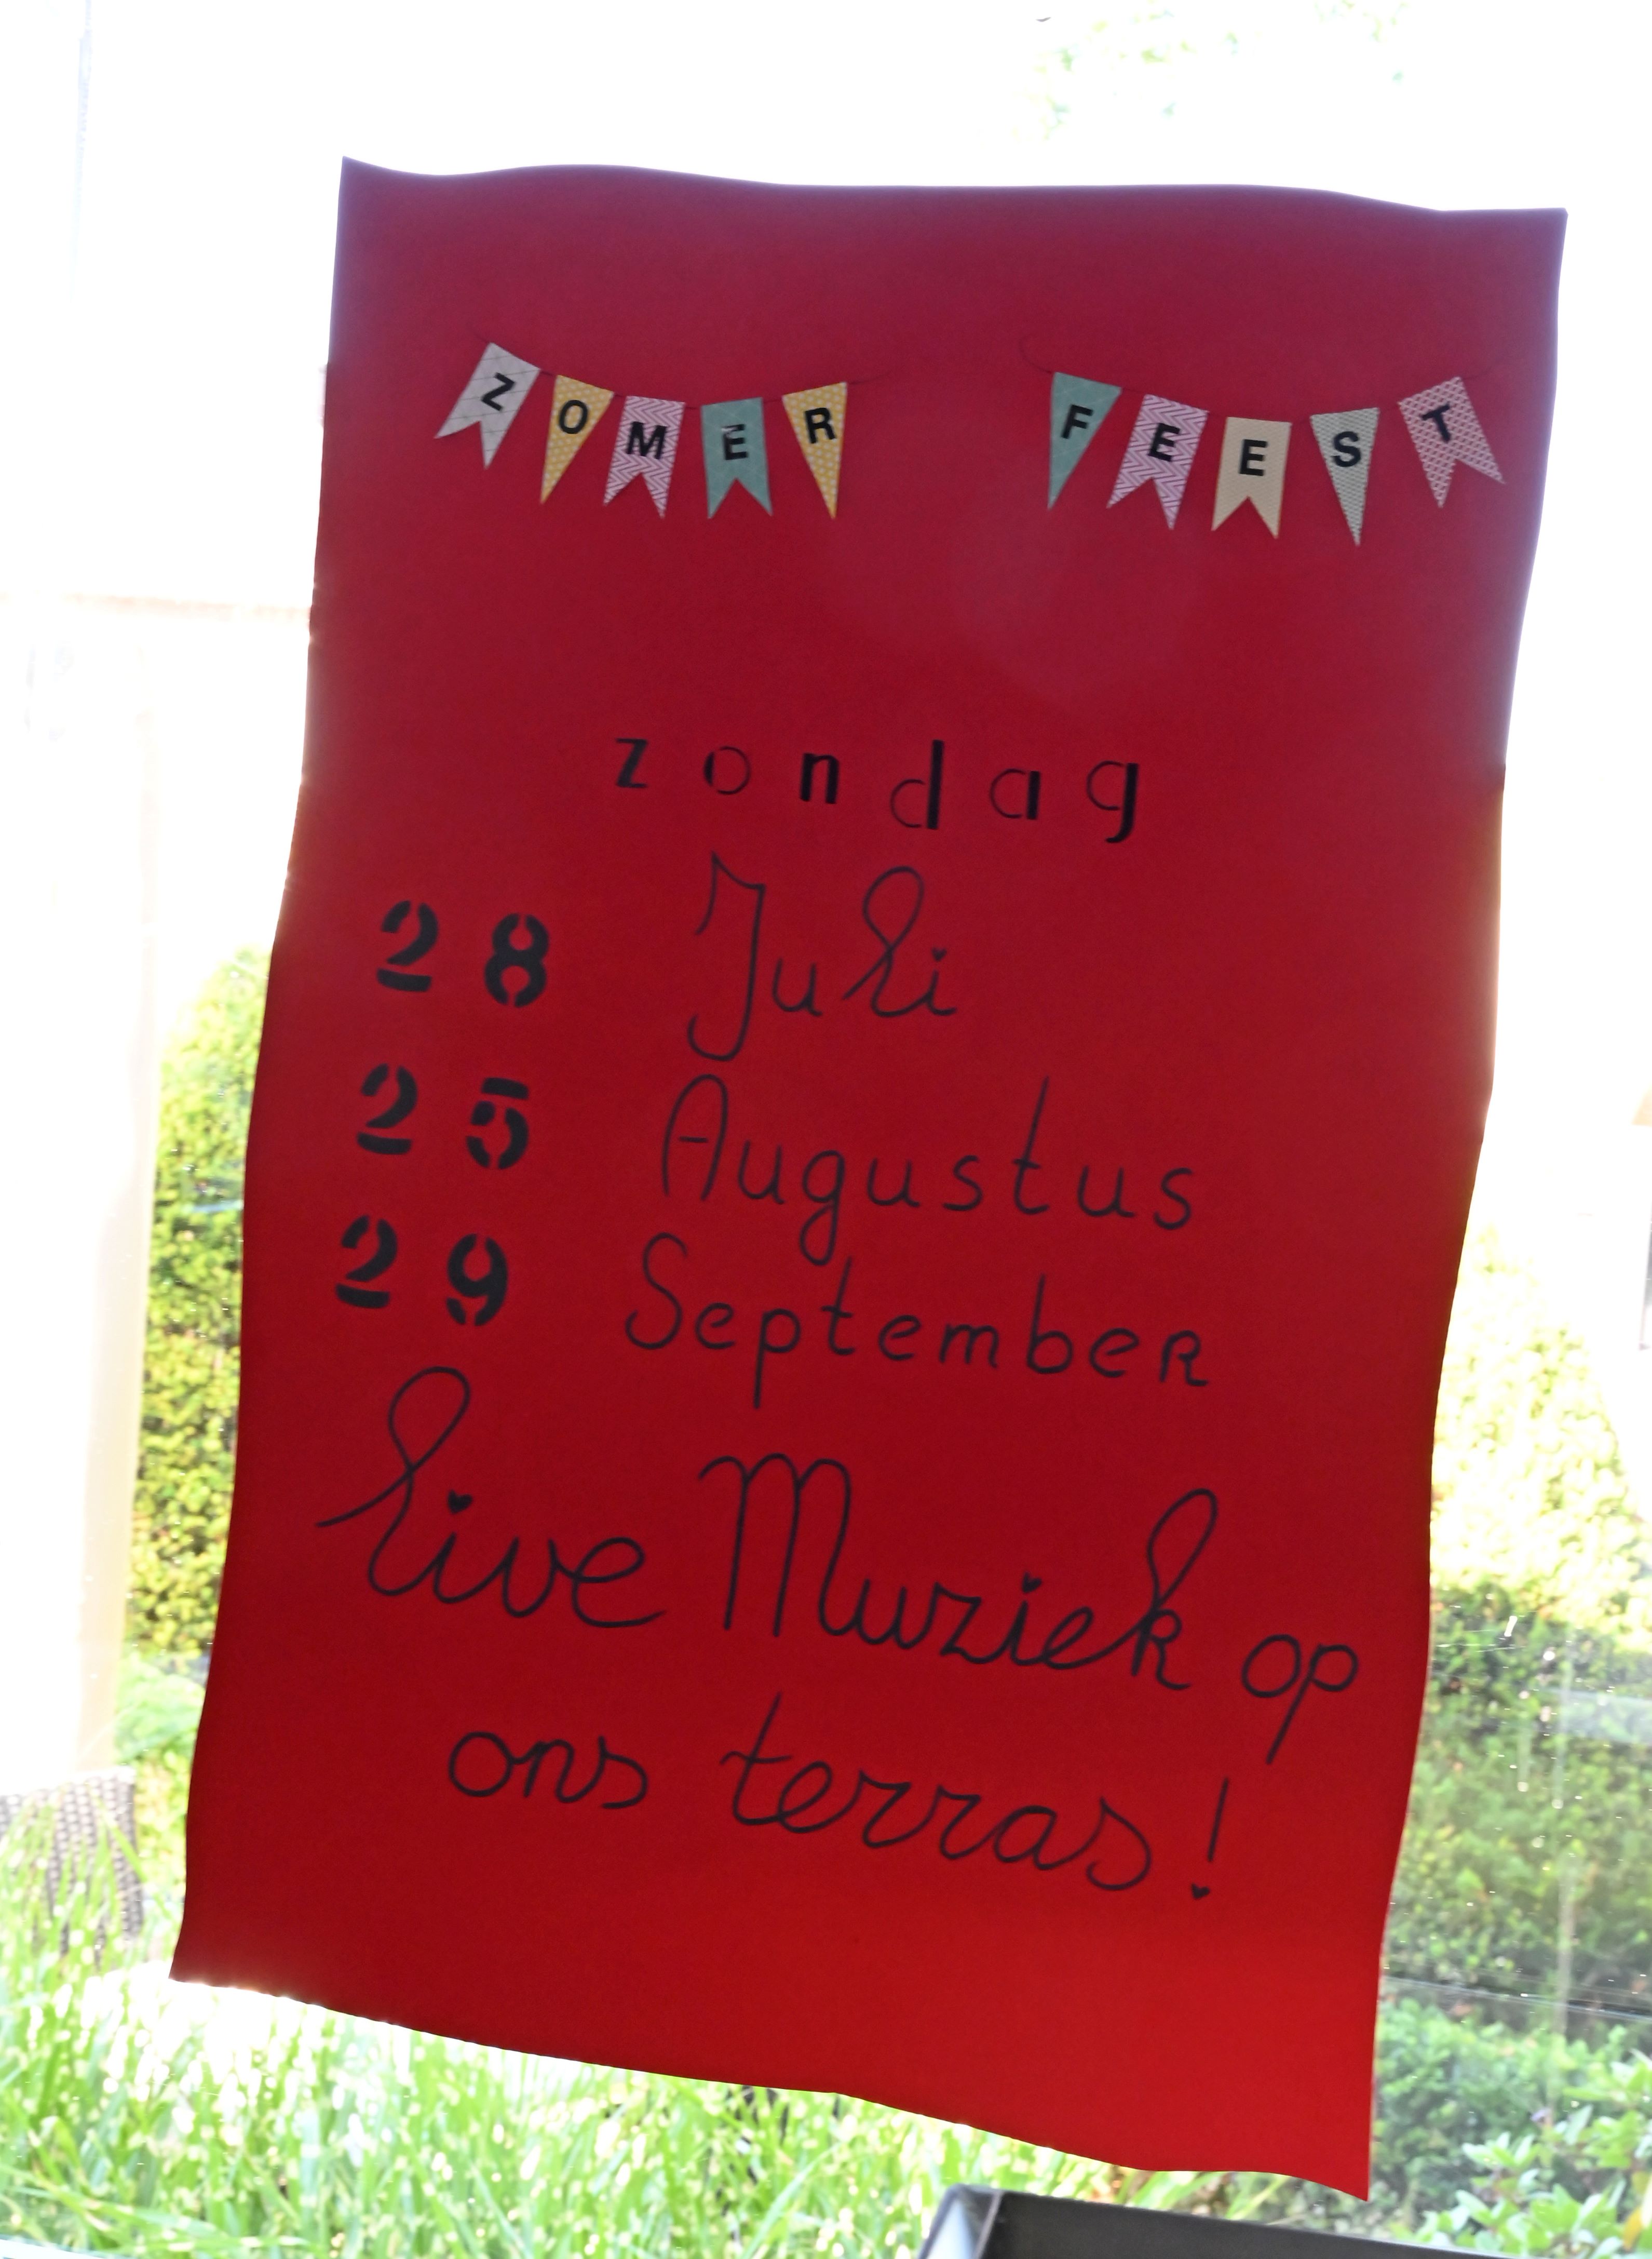 ZOMER FEEST
zondag
28 Juli
25 Augustus
29 September
live Muziek op
ons terras!